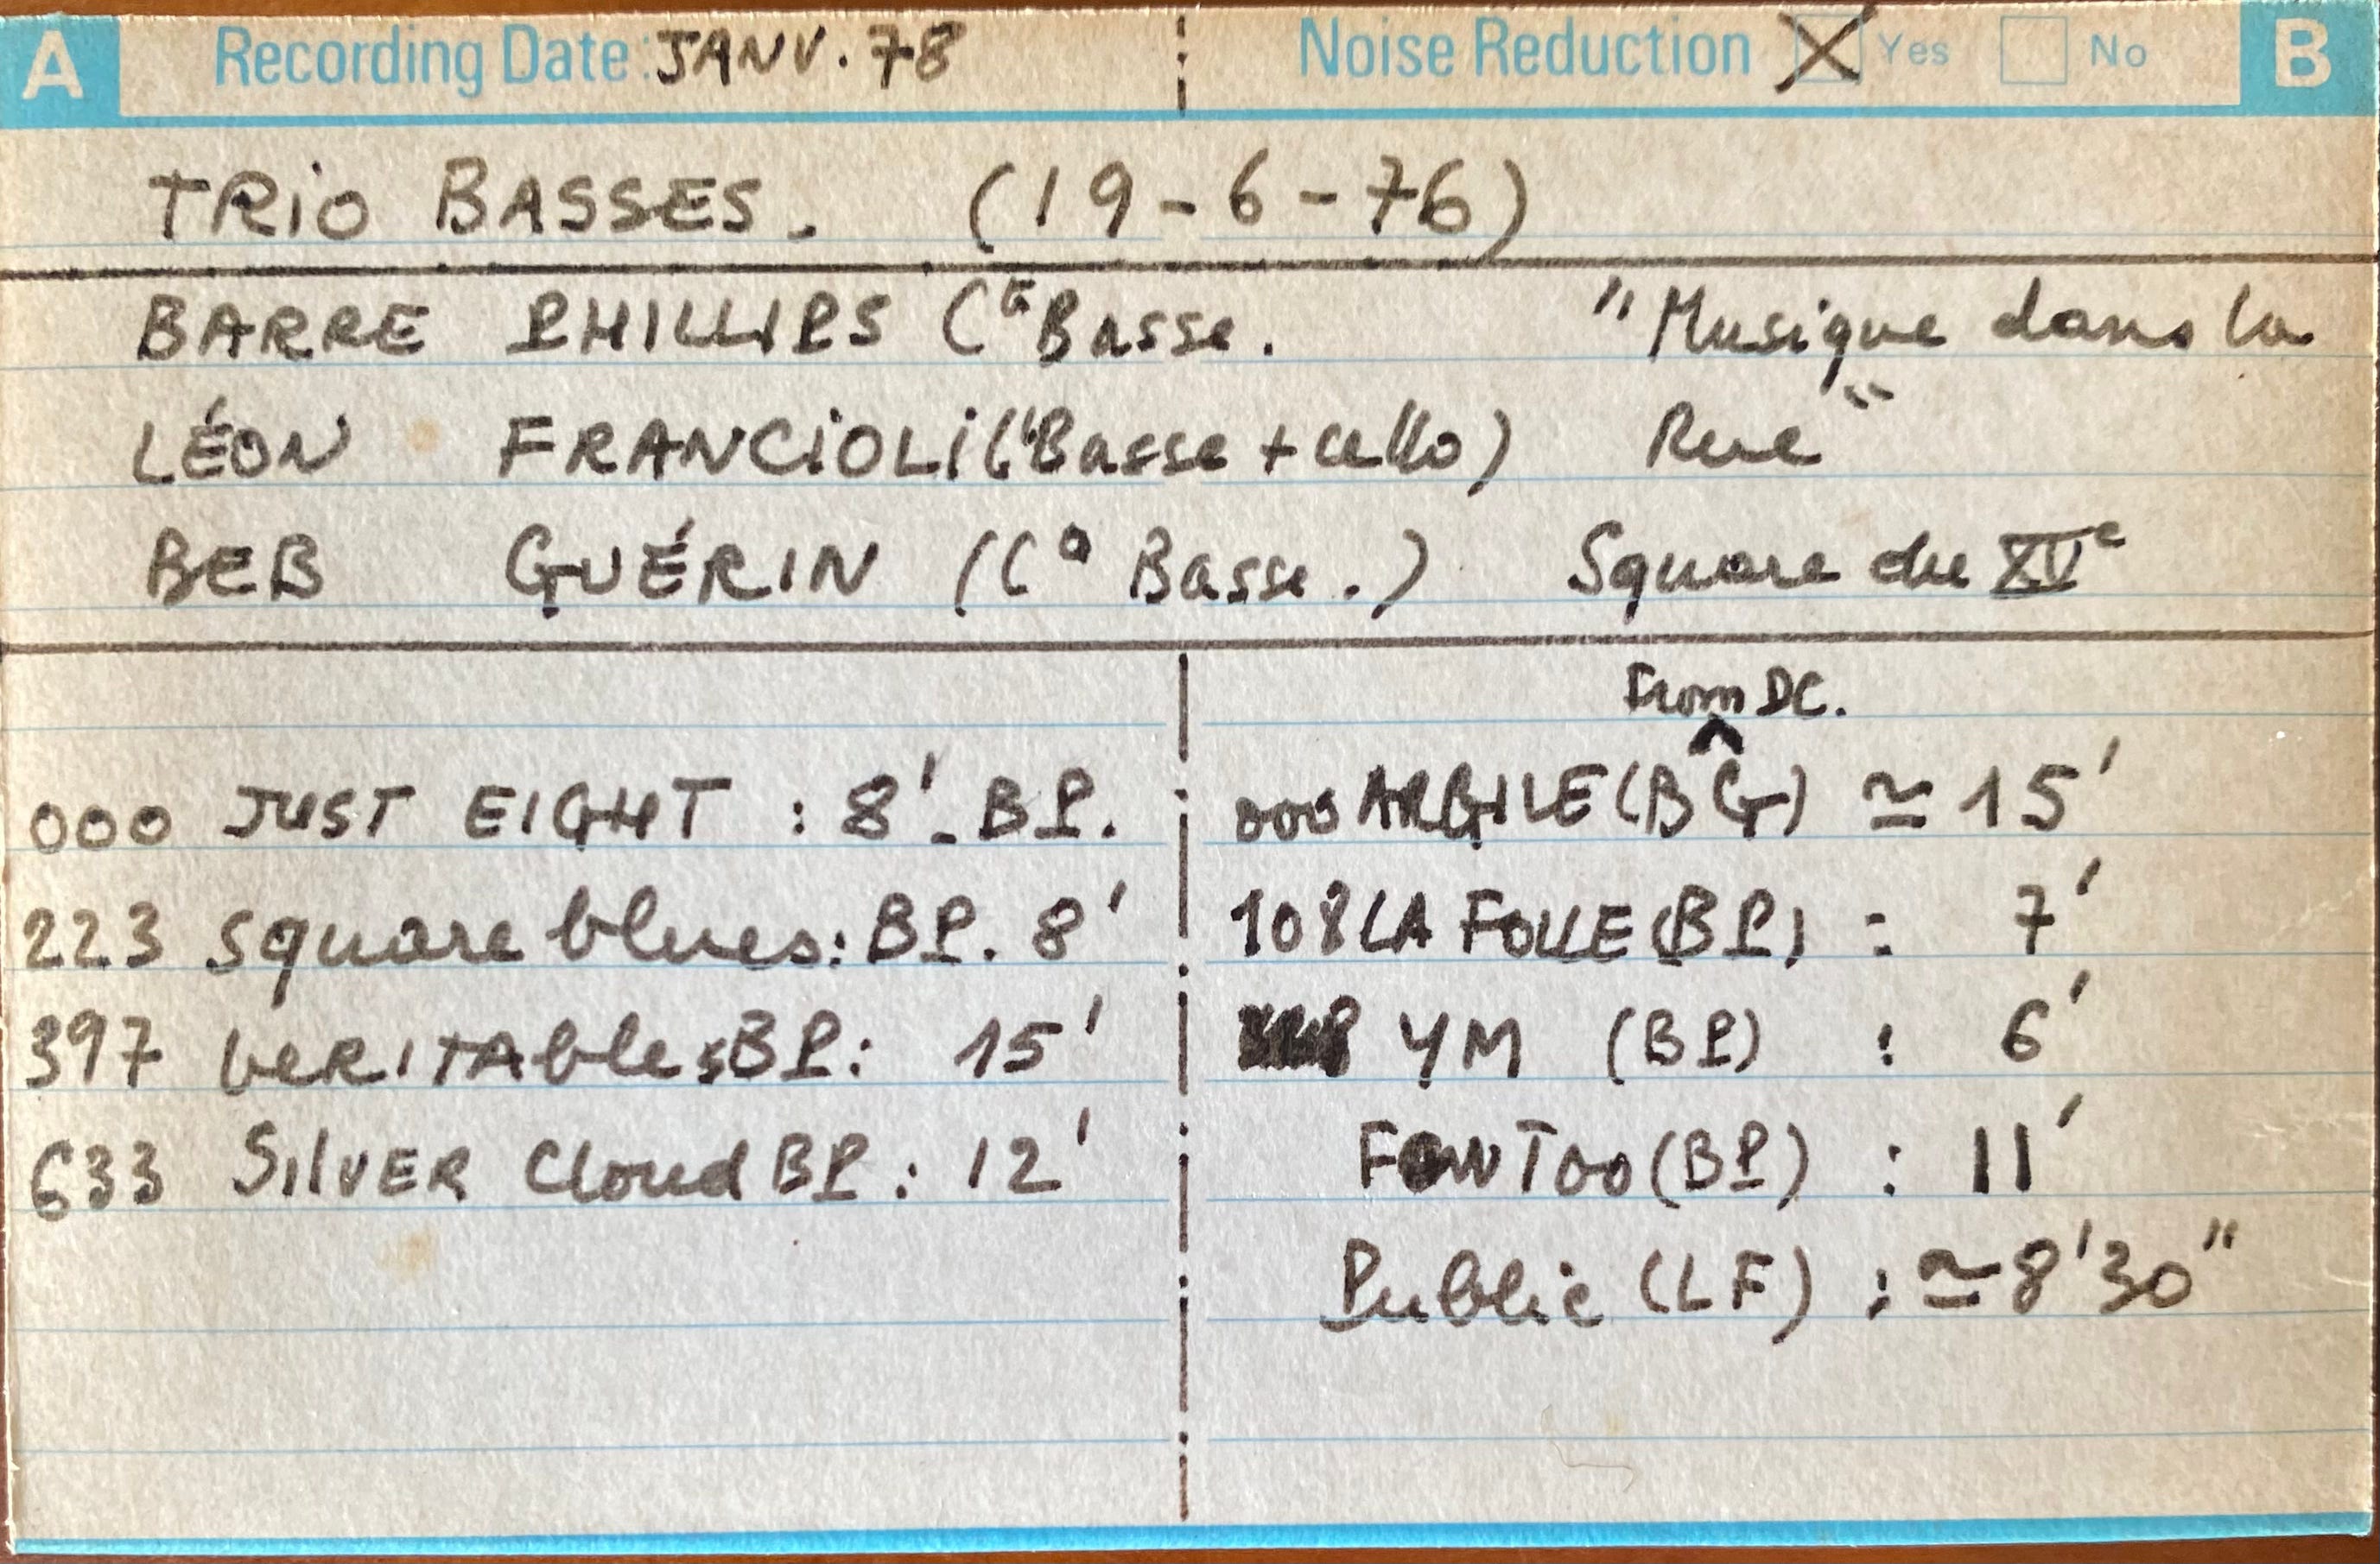 A Recording Date: JANV. 78 Noise Reduction Yes No B
TRIO BASSES. (19-6-76)
BARRE PHILLIPS CE Basse. "Musique dans la
LÉON FRANCIOLI (Basse + cello) Rue"
BEB GUÉRIN (C Basse.) Square du XVe
From DC.
000 JUST EIGHT : 8' - BP.
223 square blues: BP. 8'
397 VERITAbles BP: 15'
633 SILVER Cloud BP: 12'
000 ARGILE (B^G) ≃ 15'
108 LA FOLLE (BP) : 7'
YM (BP) : 6'
Too (BP) : 11'
Public (LF) : ≃ 8'30"